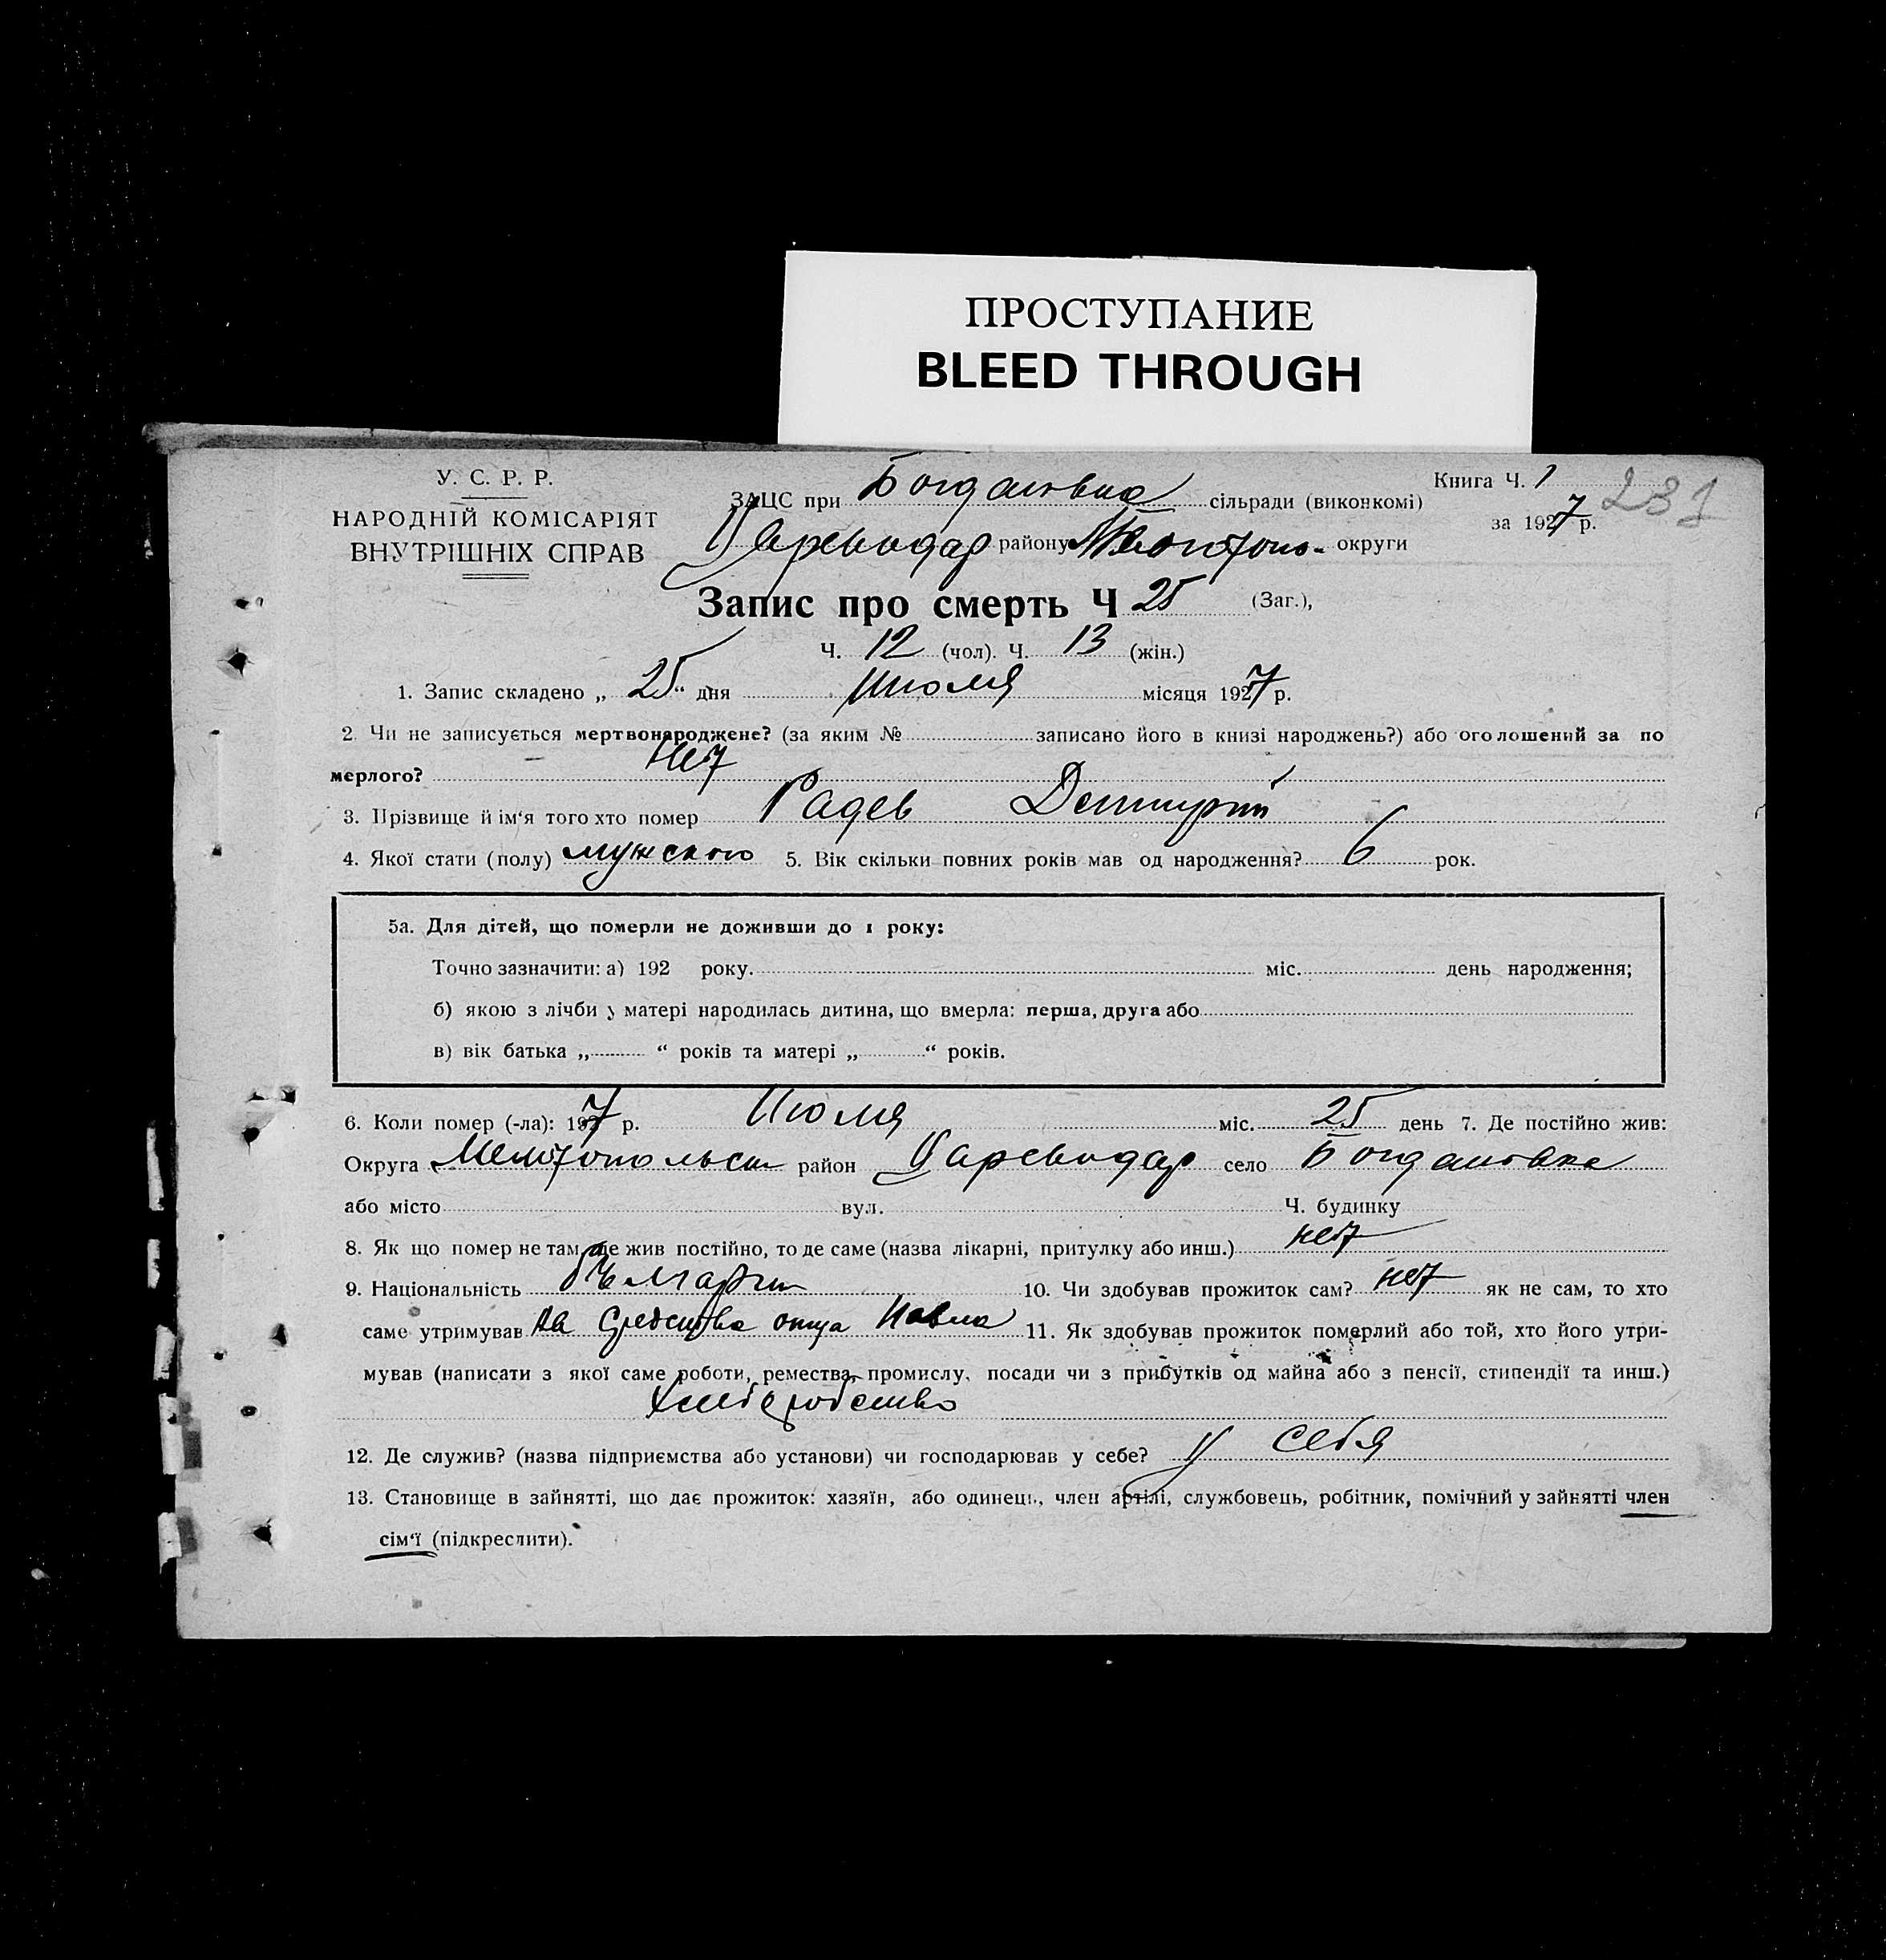 ПРОСТУПАНИЕ
BLEED THROUGH
У. С. Р. Р.
НАРОДНІЙ КОМІСАРІЯТ
ВНУТРІШНІХ СПРАВ
ЗАЦС при Богдановка сільради (виконкомі)
Цареводар району Мелитопо- округи
Книга Ч. 1 231
за 1927 р.
Запис про смерть Ч 25 (Заг.),
Ч. 12 (чол). Ч. 13 (жін.)
1. Запис складено „ 25 “ дня июля місяця 1927 р.
2. Чи не записується мертвонароджене? (за яким № записано його в книзі народжень?) або оголошений за по
мерлого? нет
3. Прізвище й ім‘я того хто помер Радев Дмитрий
4. Якої стати (полу) мужского 5. Вік скільки повних років мав од народження? 6 рок.
5а. Для дітей, що померли не доживши до 1 року:
Точно зазначити: а) 192 року. міс. день народження;
б) якою з лічби у матері народилась дитина, що вмерла: перша, друга або
в) вік батька „ “ років та матері „ “ років.
6. Коли помер (-ла): 1927 р. Июля міс. 25 день 7. Де постійно жив:
Округа Мелитопольск район Цареводар село Богдановка
або місто вул. Ч. будинку
8. Як що помер не там, де жив постійно, то де саме (назва лікарні, притулку або инш.) нет
9. Національність българин 10. Чи здобував прожиток сам? нет як не сам, то хто
саме утримував на средства отца Павла 11. Як здобував прожиток померлий або той, хто його утри-
мував (написати з якої саме роботи, ремества, промислу, посади чи з прибутків од майна або з пенсії, стипендії та инш.)
хлеборобство
12. Де служив? (назва підприємства або установи) чи господарював у себе? у себя
13. Становище в зайнятті, що дає прожиток: хазяїн, або одинець, член артілі, службовець, робітник, помічний у зайнятті член
сім‘ї (підкреслити).